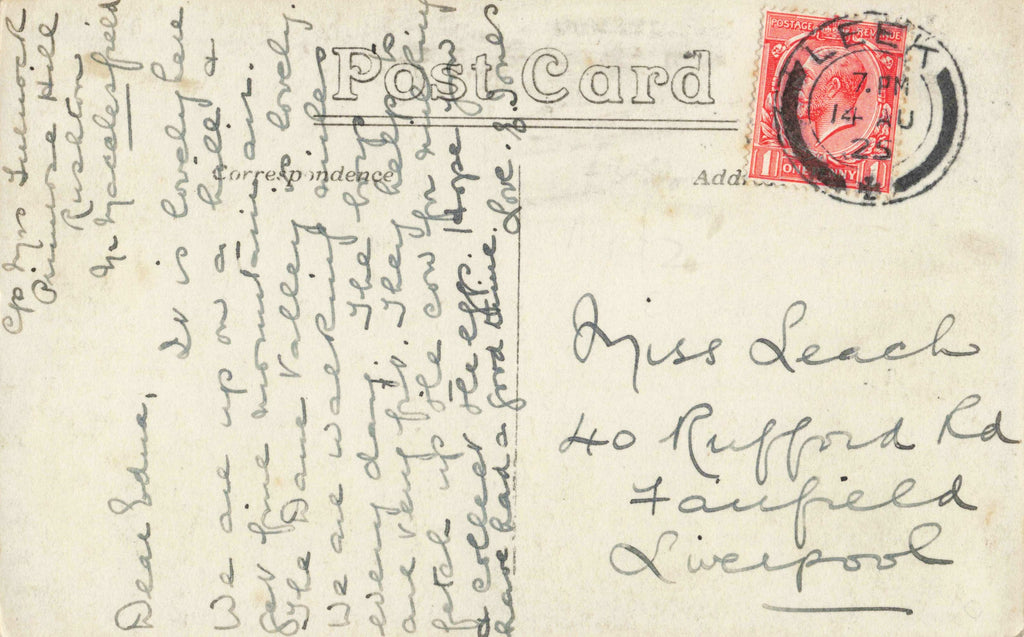 Post Card
Correspondence
POSTAGE REVENUE
1 ONE PENNY 1
LEEK
7. PM
14 AU
25
Miss Leach
40 Rufford Rd
Fairfield
Liverpool
c/o Mrs
Primrose Hill
Rushton
Nr Macclesfield
Dear Edna,
It is lovely here
We are up on a hill &
get fine mountain air.
The Dane Valley is lovely.
We are walking miles
every day. The boys
are very fit. They help to
fetch up the cow for milking
& collect the eggs. Hope you
have had a good time. Love. E. Jones